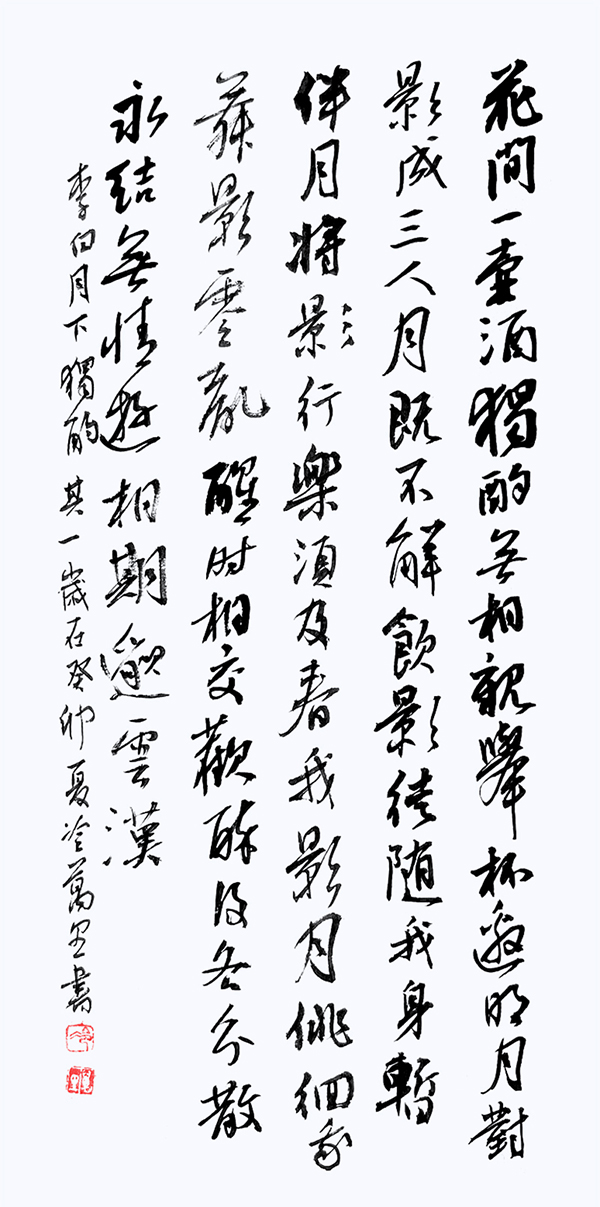 花間一壺酒獨酌無相親舉杯邀明月對
影成三人月既不解飲影徒隨我身暫
伴月將影行樂須及春我影月徘徊我
舞影零亂醒时相交歡醉後各分散
永結無情遊相期邈雲漢
李白月下獨酌其一歲在癸卯夏冷萬里書